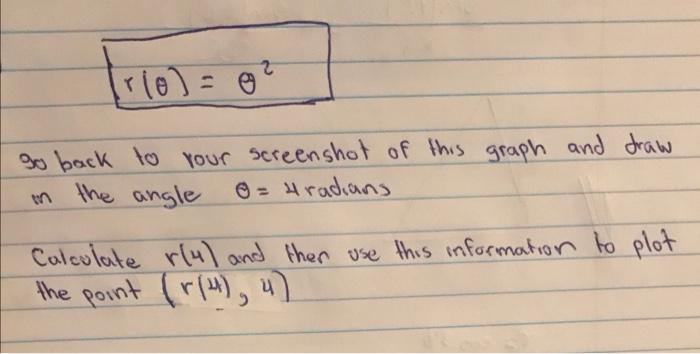 r(θ) = θ²
go back to your screenshot of this graph and draw
in the angle θ = 4 radians
Calculate r(4) and then use this information to plot
the point (r(4), 4)